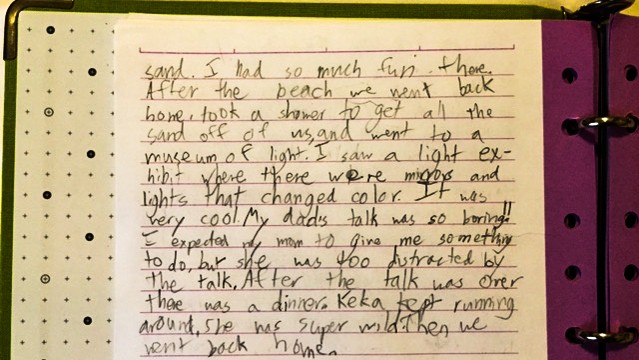 sand. I had so much fun there.
After the beach we went back
home, took a shower to get all the
sand off of us, and went to a
museum of light. I saw a light ex-
hibit where there were mirrors and
lights that changed color. It was
very cool. My dad's talk was so boring!!
I expected my mom to give me something
to do, but she was too distracted by
the talk. After the talk was over
there was a dinner. Keka kept running
around, she was super wild. Then we
went back home.